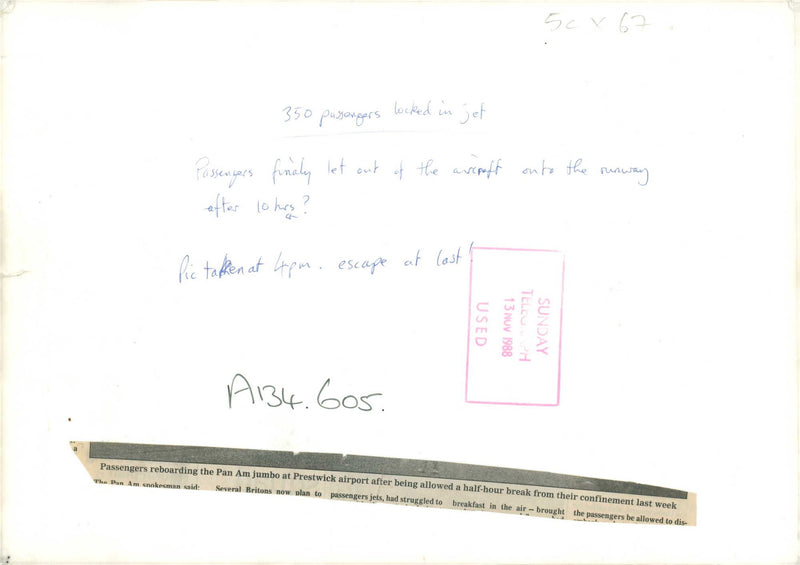 5c x 67.
350 passengers locked in jet
Passengers finaly let out of the aircraft onto the runway
after 10 hrs?
Pic taken at 4pm. escape at last!
SUNDAY
13 NOV 1988
USED
A134.605.
Passengers reboarding the Pan Am jumbo at Prestwick airport after being allowed a half-hour break from their confinement last week
The Pan Am spokesman said: Several Britons now plan to passengers jets, had struggled to breakfast in the air – brought the passengers be allowed to dis-